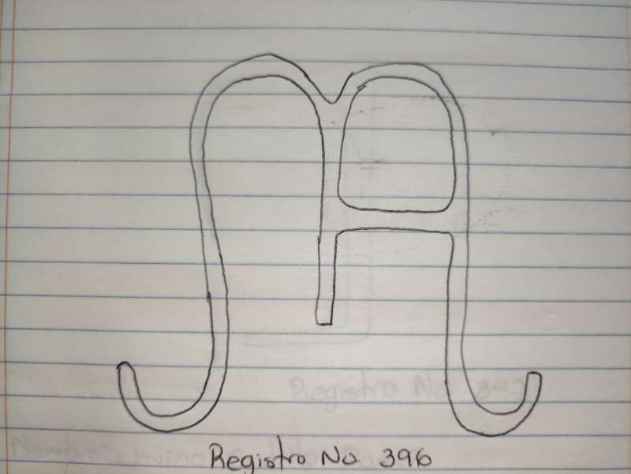 Registro No 396